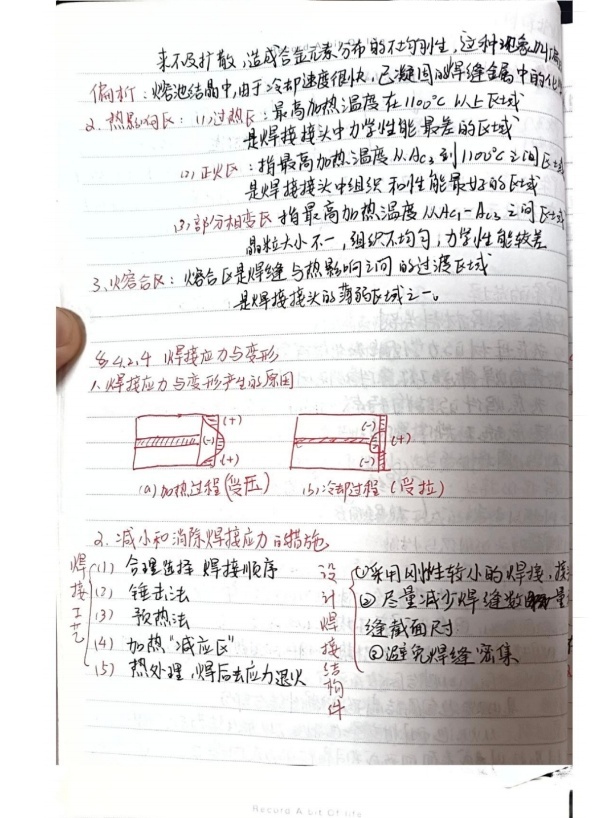 来不及扩散,造成合金元素分布的不均匀性,这种现象叫偏
偏析:熔池结晶中,由于冷却速度很快,已凝固的焊缝金属中的化
2. 热影响区:(1)过热区:最高加热温度在1100℃以上区域
是焊接接头中力学性能最差的区域
(2)正火区:指最高加热温度从Ac3到1100℃之间区域
是焊接接头中组织和性能最好的区域
(3)部分相变区 指最高加热温度从Ac1-Ac3之间区域
晶粒大小不一,组织不均匀,力学性能较差
3、熔合区:熔合区是焊缝与热影响之间的过渡区域
是焊接接头的薄弱区域之一。
§4.2.4 焊接应力与变形
1、焊接应力与变形产生的原因
(+)
(-)
(+)
(-)
(+)
(-)
(a)加热过程(受压)
(b)冷却过程(受拉)
2、减小和消除焊接应力的措施
焊接工艺
(1) 合理选择焊接顺序
(2) 锤击法
(3) 预热法
(4) 加热"减应区"
(5) 热处理,焊后去应力退火
设计焊接结构件
①采用刚性较小的焊接,接
②尽量减少焊缝数量
缝截面尺寸
③避免焊缝密集
Record A bit Of life